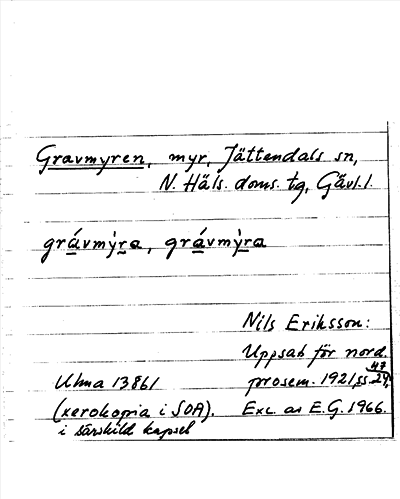 Gravmyren, myr, Jättendals sn,
N. Häls. doms. tg, Gävl. l.
grávmy̍ra, grávmỳra
Nils Eriksson:
Uppsats för nord.
prosem. 1921, ss. 24,
47
Ulma 13861
(xerokopia i SOA).
i särskild kapsel
Exc. av E.G. 1966.